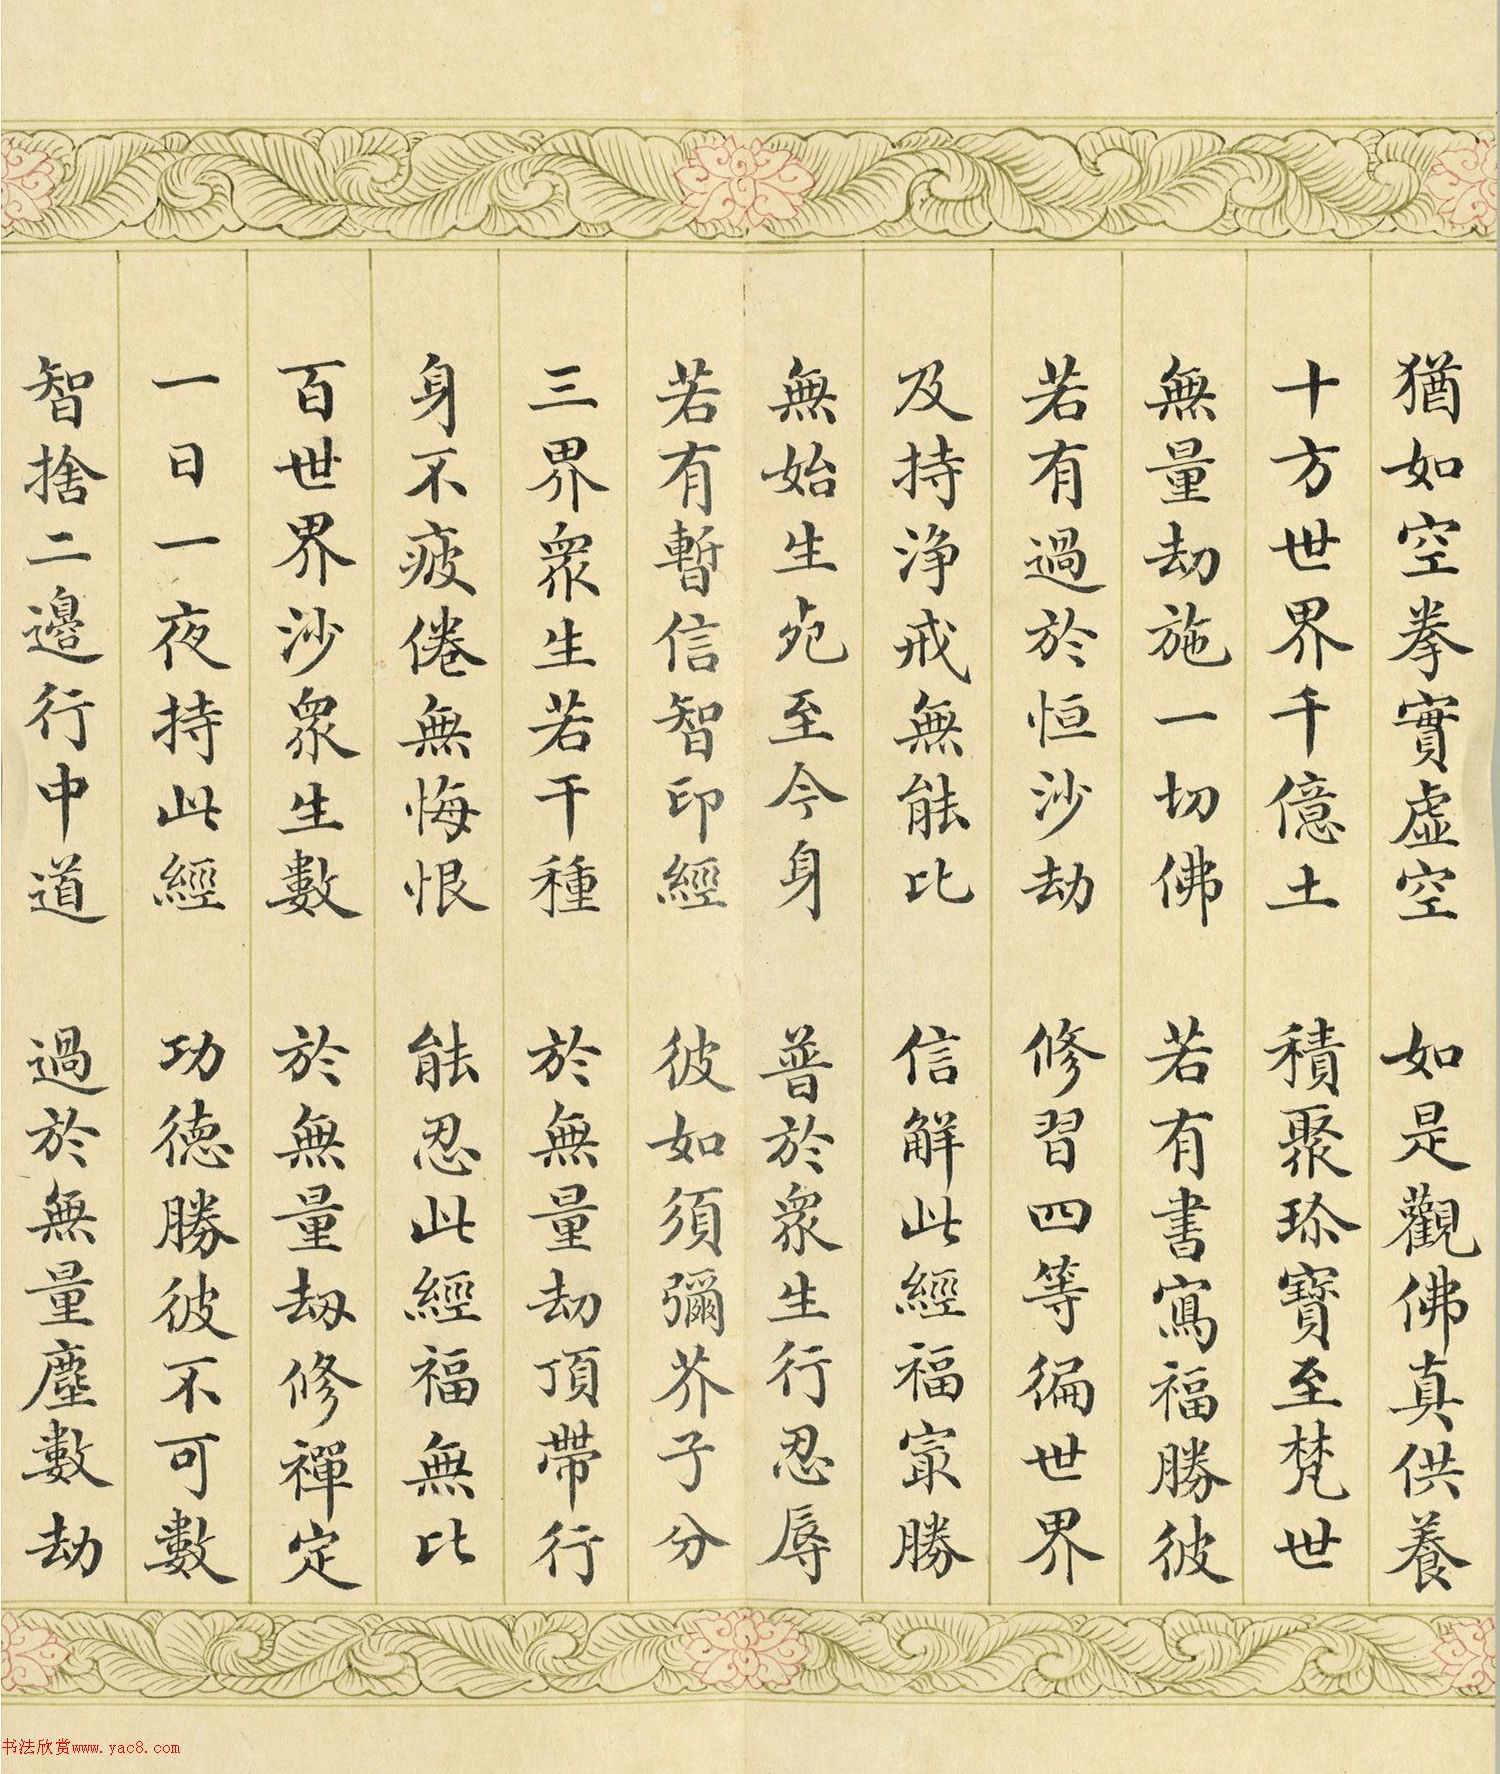 猶如空拳實虛空　如是觀佛真供養
十方世界千億土　積聚珎寶至梵世
無量劫施一切佛　若有書寫福勝彼
若有過於恒沙劫　修習四等徧世界
及持淨戒無能比　信解此經福寂勝
無始生死至今身　普於衆生行忍辱
若有暫信智印經　彼如須彌芥子分
三界衆生若干種　於無量劫頂帶行
身不疲倦無悔恨　能忍此經福無比
百世界沙衆生數　於無量劫修禪定
一日一夜持此經　功德勝彼不可數
智捨二邊行中道　過於無量塵數劫
书法欣赏www.yac8.com